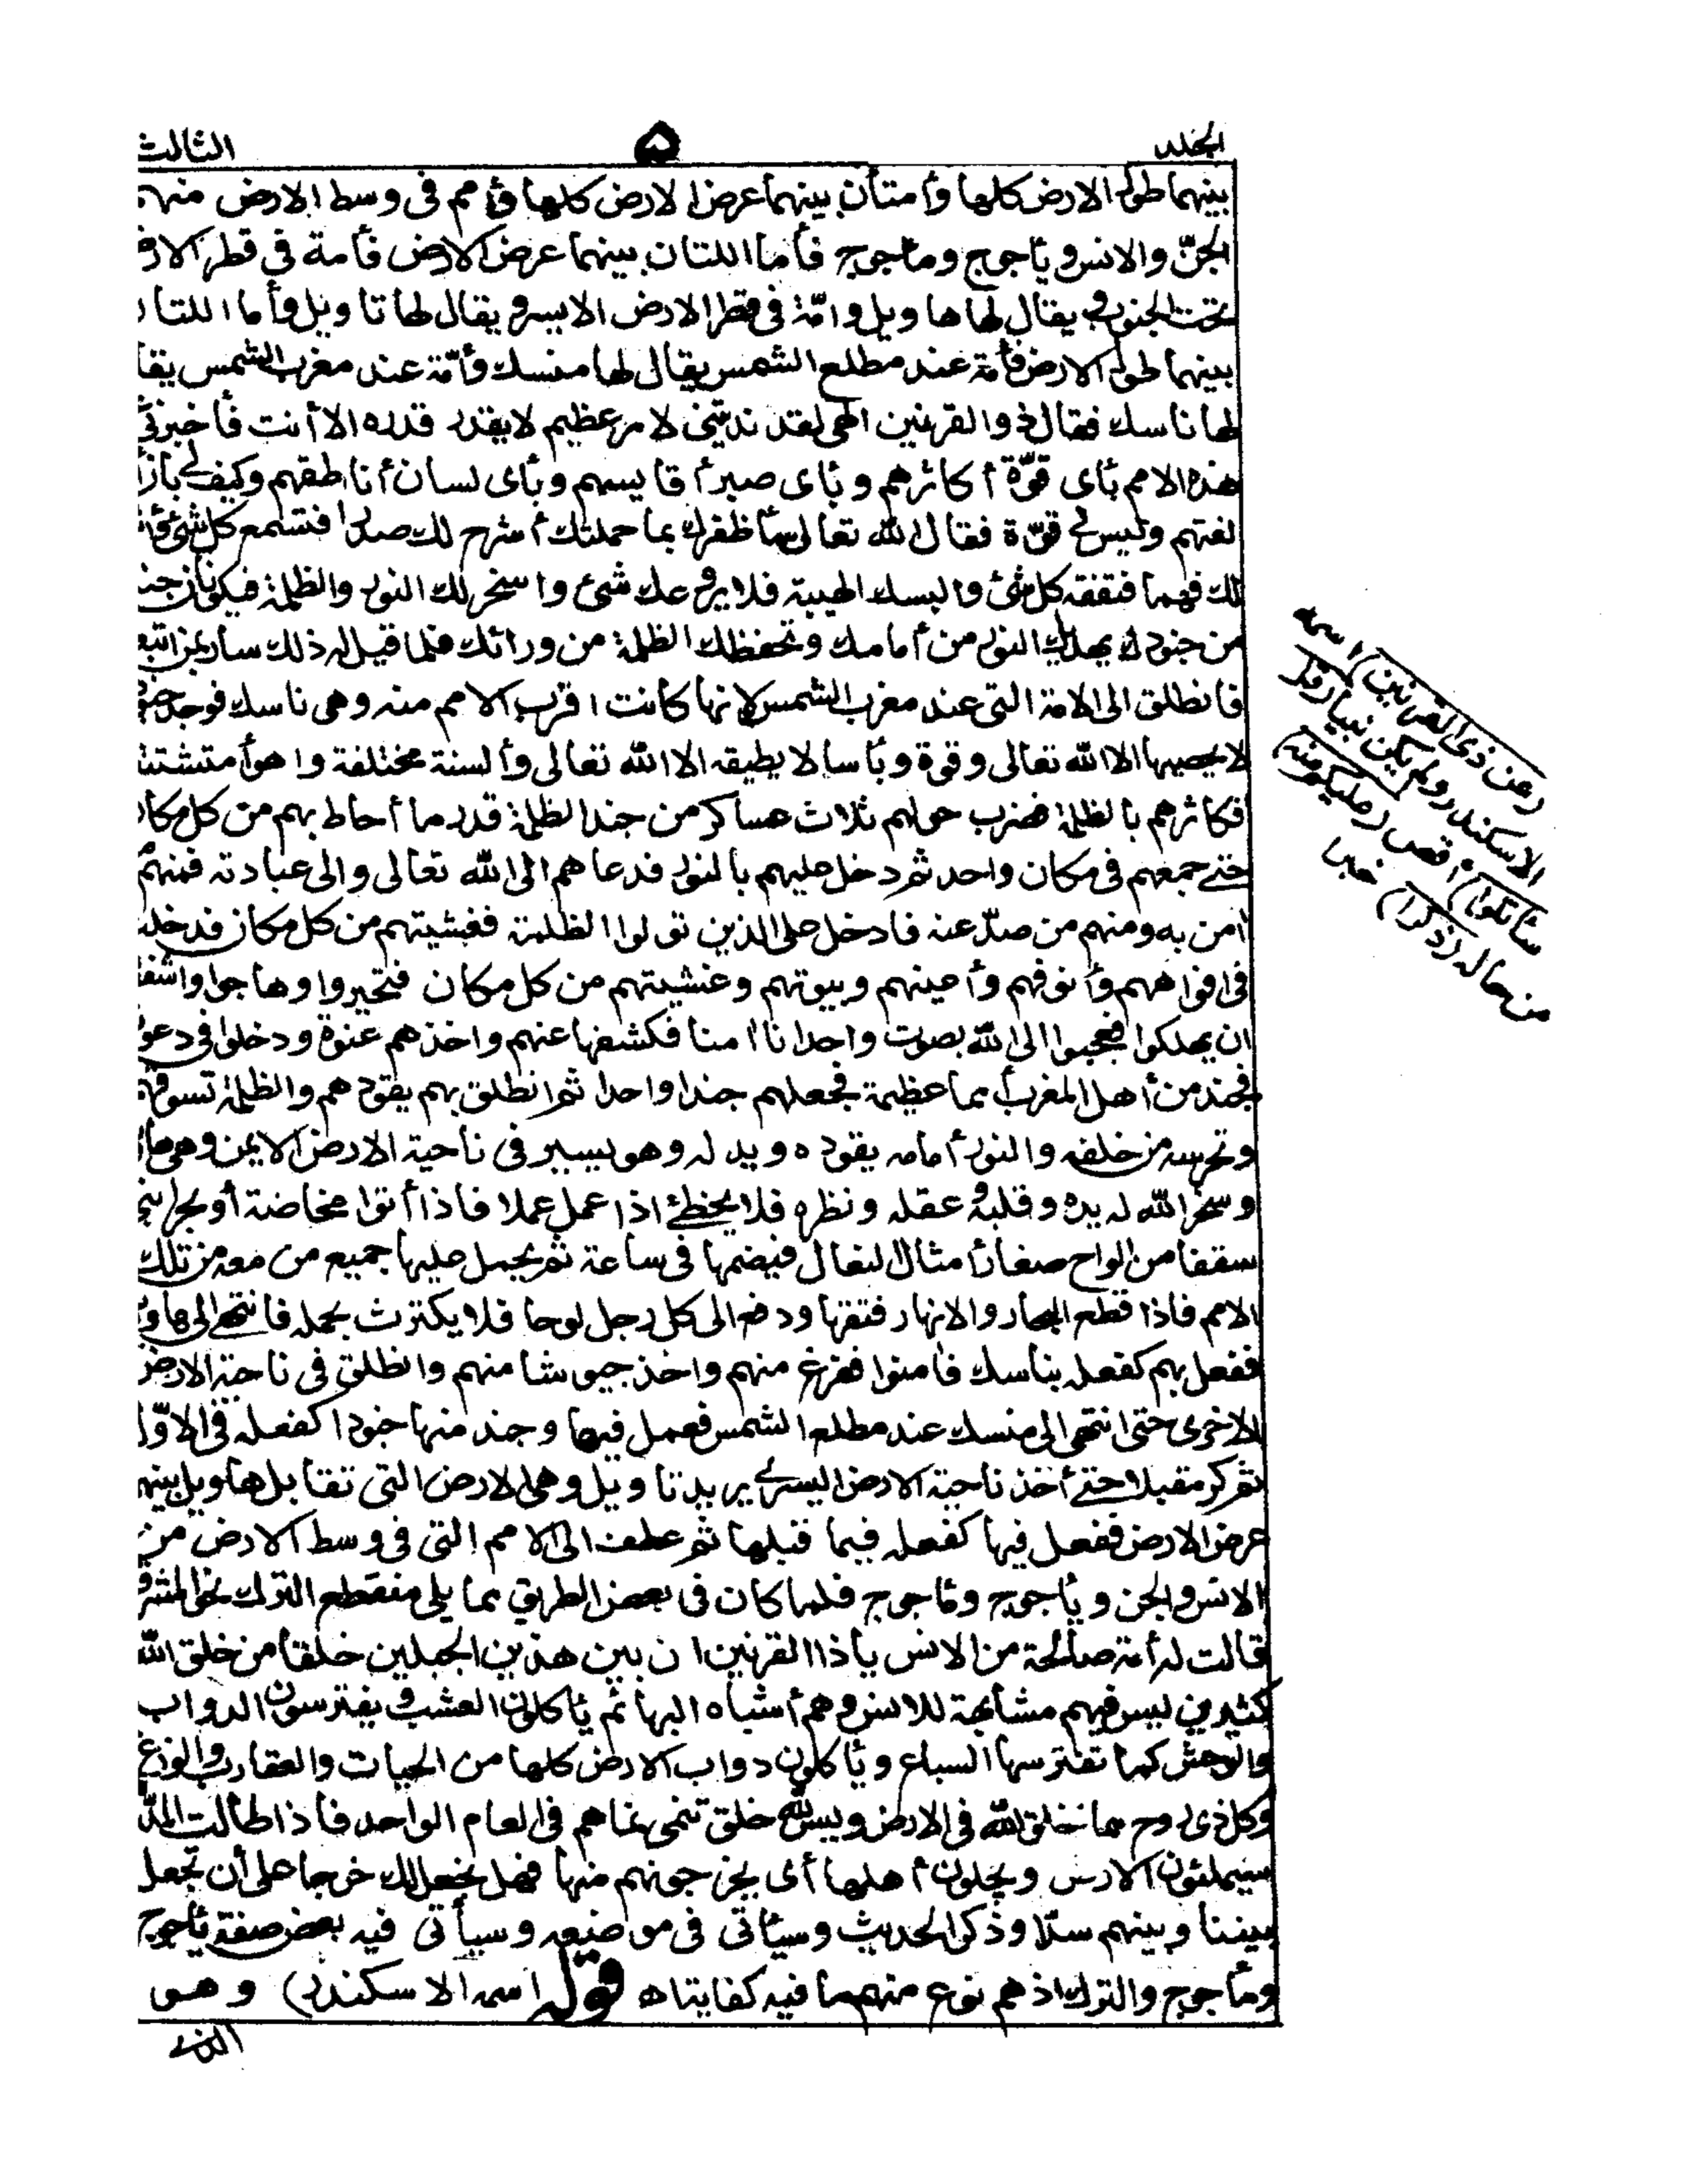 المجلد ۵ الثالث
بينهما طول الارض كلها وأمتان بينهما عرض الارض كلها وأمم فى وسط الارض منهم
الجنّ والانس ويأجوج ومأجوج فأما اللتان بينهما عرض الارض فأمة فى قطر الار
تحت الجنوب يقال لها هاويل وامّة فى قطر الارض الايسر يقال لها تاويل وأما اللتا
بينهما طول الارض فأمة عند مطلع الشمس يقال لها منسك وأمّة عند مغرب الشمس يقا
لها ناسك فقال ذوالقرنين الهى لقد ندبتنى لامر عظيم لايقدر قدره الا أنت فأخبرنى
هذه الامم بأى قوّة أكاثرهم وبأى صبر أقاسيهم وبأى لسان أناطقهم وكيف لى بأن
لغتهم وليس لى قوّة فقال الله تعالى سأظفرك بما حملتك أشرح لك صدرا فتسمع كل شئ
لك فهما فتفقه كل شئ والبسك الهيبة فلا يروعك شئ واسخر لك النور والظلمة فيكونان جند
من جنودك يهديك النور من أمامك وتحفظك الظلمة من ورائك فلما قيل له ذلك سار بمن اتبعه
فانطلق الى الامة التى عند مغرب الشمس لانها كانت اقرب الامم منه وهى ناسك فوجد
لا يحصيها الا الله تعالى وقوة وبأسا لا يطيقه الا الله تعالى وألسنة مختلفة واهوأ متشتتة
فكاثرهم بالظلمة فضرب حولهم ثلاث عساكر من جند الظلمة قدر ما أحاط بهم من كل مكا
حتى جمعهم فى مكان واحد ثم دخل عليهم بالنور فدعاهم الى الله تعالى والى عبادته فمنهم
آمن به ومنهم من صدّ عنه فادخل على الذين تولوا الظلمة فغشيتهم من كل مكان فدخلت
فى افواههم وأنوفهم وأعينهم وبيوتهم وغشيتهم من كل مكان فتحيروا وهاجوا واشفقوا
ان يهلكوا فعجبوا الى الله بصوت واحد انا آمنا فكشفها عنهم واخذهم عنوة ودخلوا فى دعو
فجند من أهل المغرب أمما عظيمة فجعلهم جندا واحدا ثم انطلق بهم يقودهم والظلمة تسوقهم
وتحرسه من خلفه والنور أمامه يقوده ويدله وهو يسير فى ناحية الارض الايمن وهى ها
وسخر الله له يده وقلبه وعقله ونظره فلا يخطئ اذا عمل عملا فاذا أتوا مخاضة أو بحرا بنى
سققا من الواح صغار أمثال النعال فيضمها فى ساعة ثم يحمل عليها جميع من معه من تلك
الامم فاذا قطع البحار والانهار فتقها ودفع الى كل رجل لوحا فلا يكترث بحمله فانتهى الى هاو
ففعل بهم كفعله بناسك فآمنوا ففرغ منهم واخذ جيوشا منهم وانطلق فى ناحية الارض
الاخرى حتى انتهى الى منسك عند مطلع الشمس فعمل فيها وجند منها جنودا كفعله فى الاوّل
ثم كر مقبلا حتى أخذ ناحية الارض اليسرى يريد تاويل وهى الارض التى تقابل هاويل بينهما
عرض الارض ففعل فيها كفعله فيما قبلها ثم عطف الى الامم التى فى وسط الارض من
الانس والجن ويأجوج ومأجوج فلما كان فى بعض الطريق مما يلى منقطع الترك نحو المشرق
قالت له أمة صالحة من الانس ياذا القرنين ان بين هذين الجبلين خلقا من خلق الله
كثيرين ليس فيهم مشابهة للانس وهم أشباه البهائم يأكلون العشب ويفترسون الدواب
والوحش كما تفترسها السباع ويأكلون دواب الارض كلها من الحيات والعقارب والوزغ
وكل ذى روح مما خلق الله فى الارض وليس لله خلق تنمى نماهم فى العام الواحد فاذا طالت المدّ
سيملئون الارض ويجلون أهلها أى يخرجونهم منها فهل نجعل لك خرجا على أن تجعل
بيننا وبينهم سدّا وذكر الحديث وسيأتى فى موضعه وسيأتى فيه بعض صفة يأجوج
ومأجوج والترك اذ هم نوع منهم ما فيه كفاية اه قوله اسمه الاسكندر) وهو
الذى
(عن ذى القرنين) اسمه
الاسكندر ولم يكن نبيا (قل
سأتلوا) اقص (عليكم منه)
من حاله (ذكرا) خبرا